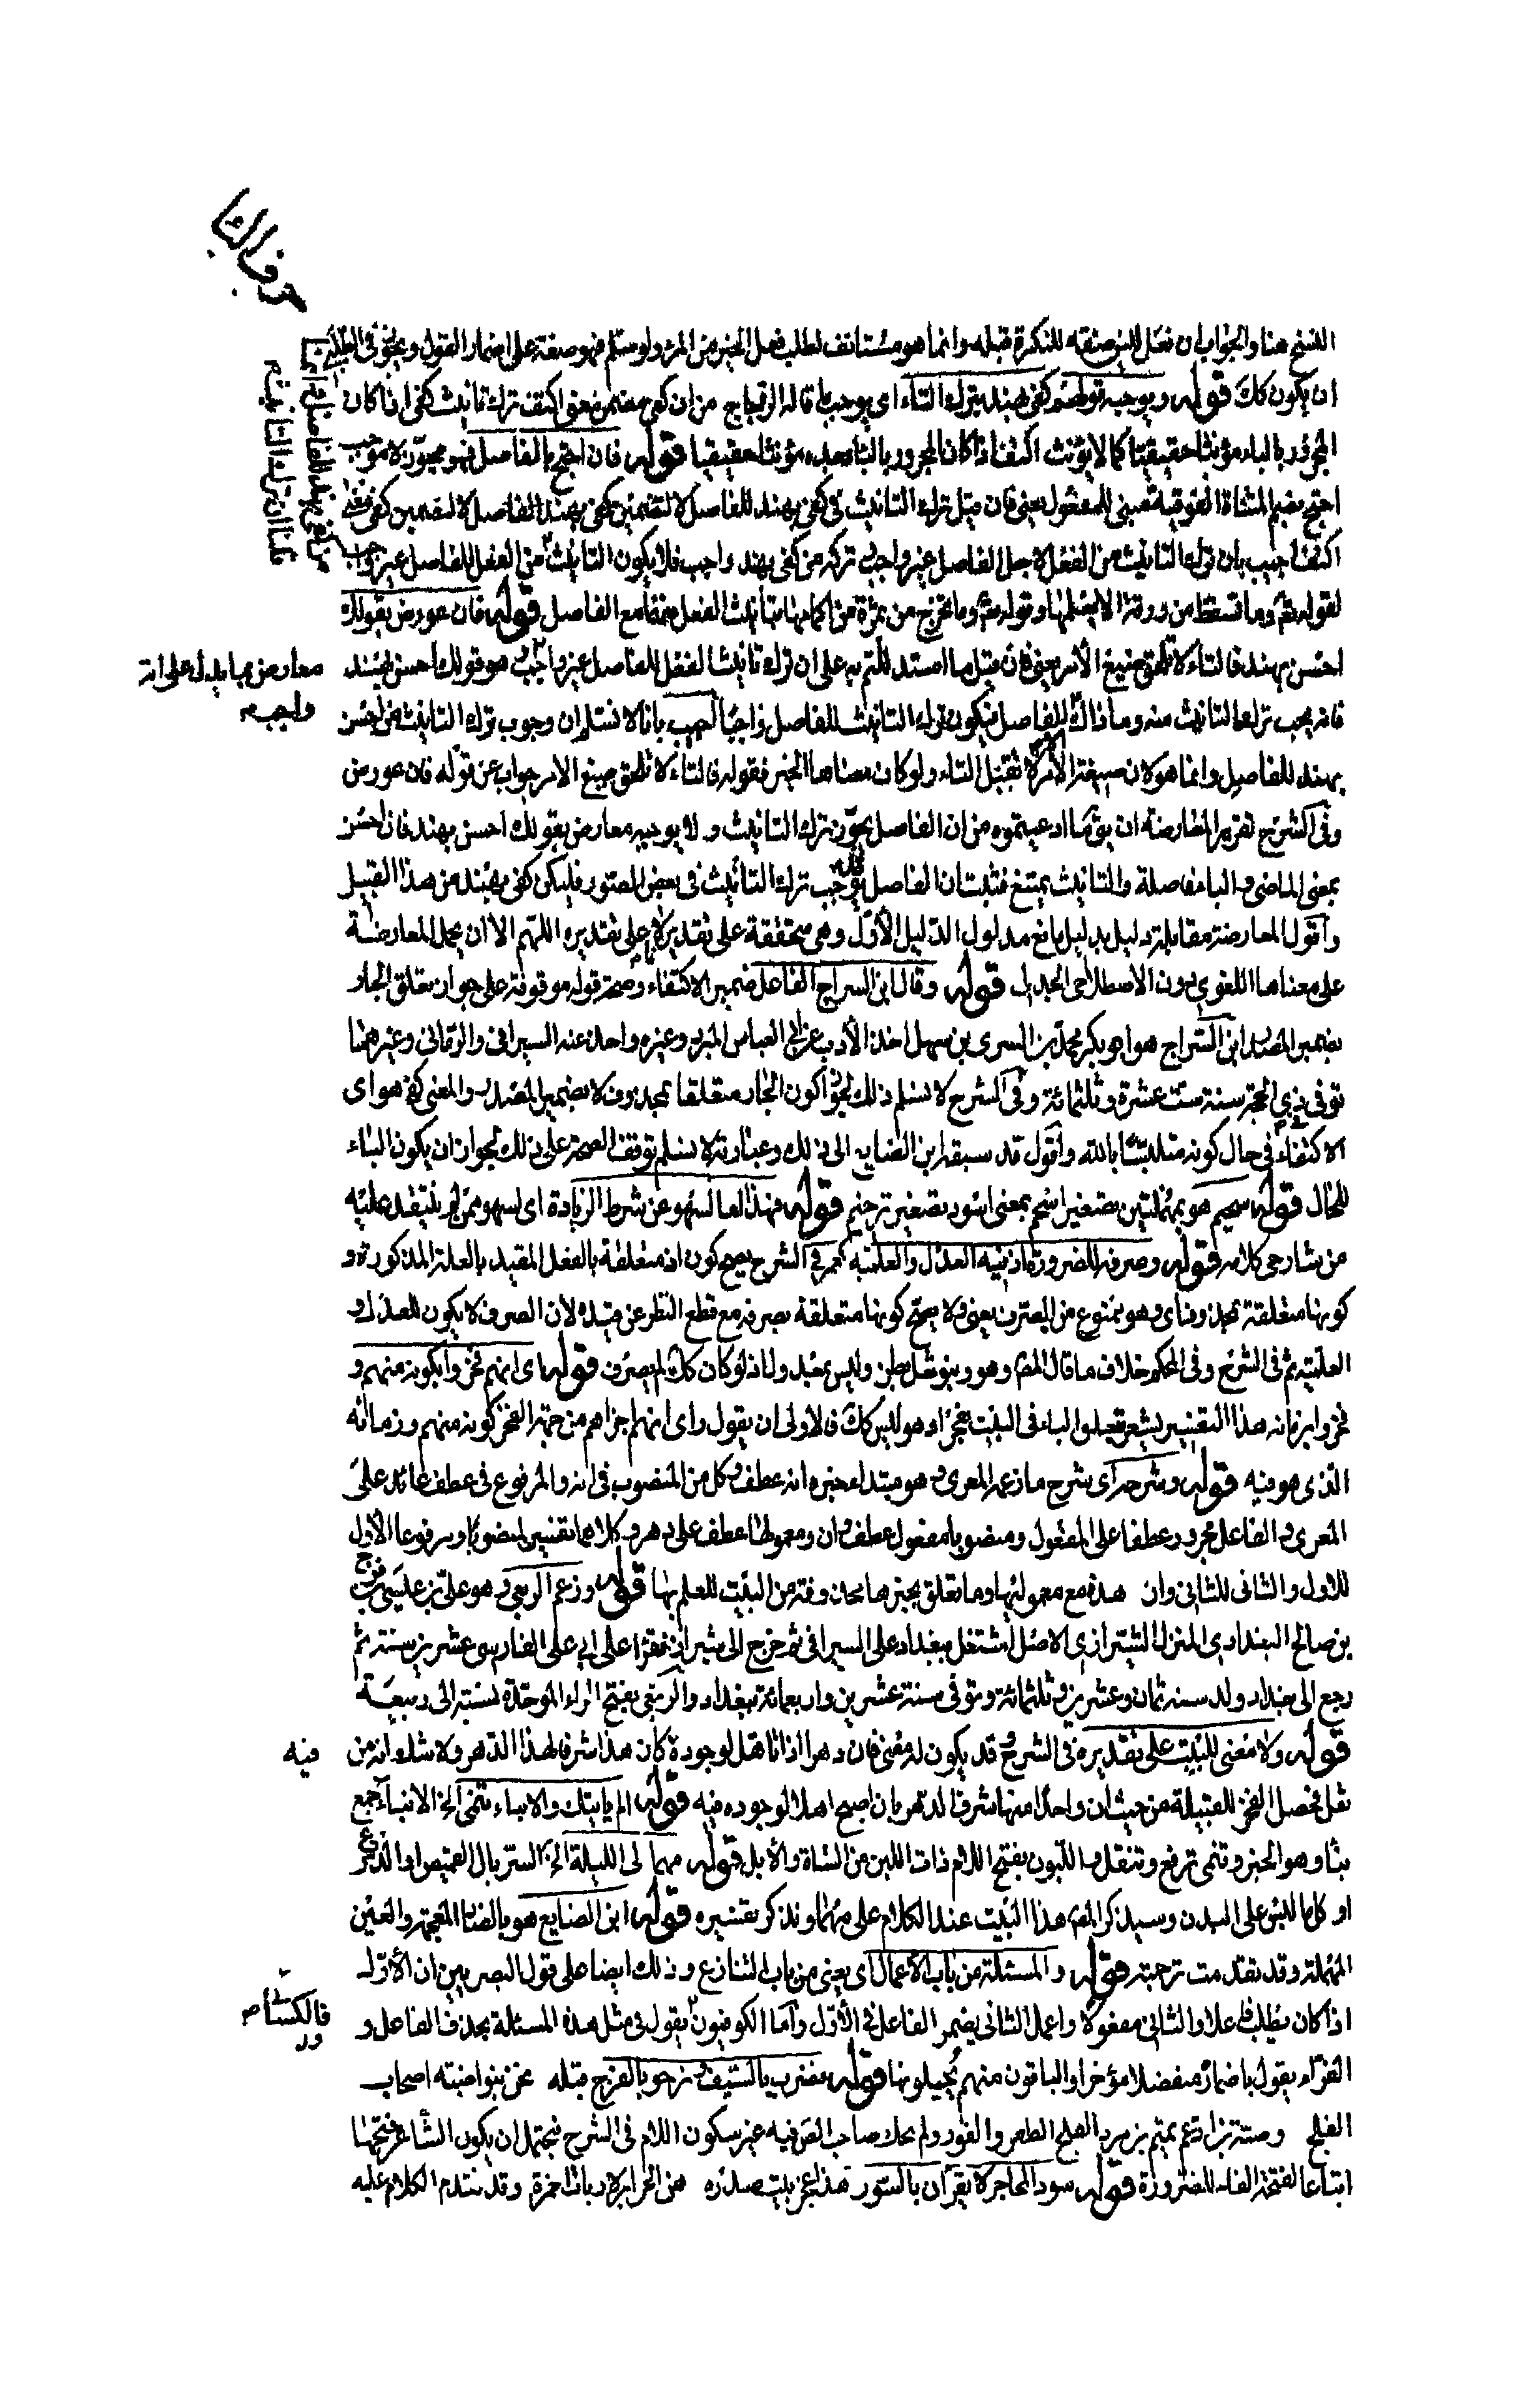 حرف الباء
النسخ هنا والجواب ان فعل ليس صفة للنكرة قبله وانما هو مستانف لطلب فعل الخير من المرء ولو سلم فهو صفة على اضمار القول ويجوز في الطلب
ان يكون كك قوله ويوجبه قولهم كفى بهند بترك التاء اى يوجب ما قاله الزجاج من ان كفى مضمن معنى اكتف ترك تانيث كفى اذا كان
المجرور بالباء مؤنثا حقيقيا كما لا يؤنث اكتف اذا كان المجرور بالباء بعده مؤنثا حقيقيا قوله فان احتج بالفاصل فهو مجوز لا موجب
احتج بضم المثناة الفوقية مبنى للمفعول يعنى فان قيل ترك التانيث فى كفى بهند للفاصل لا لتضمين كفى معنى
اكتف اجيب بان ترك التانيث من الفعل لاجل الفاصل غير واجب وتركه من كفى بهند واجب فلا يكون التانيث من الفعل للفاصل غير واجب
لقوله تعالى وما تسقط من ورقة الا يعلمها وقوله تعالى وما تخرج من ثمرة من اكمامها بتانيث الفعل منهما مع الفاصل قوله فان عورض بقولك
احسن بهند فالتاء لا تلحق صيغ الامر يعنى فان قيل ما استدللتم به على ان ترك تانيث الفعل للفاصل غير واجب وهو قولك احسن بهند
معارض بما يدل على انه
واجب
فانه يجب ترك التانيث منه وما ذاك الا للفاصل فيكون ترك التانيث للفاصل واجبا اجيب بانا لا نسلم ان وجوب ترك التانيث من احسن
بهند للفاصل وانما هو لان صيغة الامر لا تقبل التاء ولو كان معناها الخبر فقوله فالتاء لا تلحق صيغ الامر جواب عن قوله فان عورض
وفى الشرح تقرير المعارضة ان يق ما ادعيتموه من ان الفاصل يجوز ترك التانيث ولا يوجبه معارض بقولك احسن بهند فان احسن
بمعنى الماضى والباء فاصلة والتانيث يمتنع فثبت ان الفاصل يوجب ترك التانيث فى بعض الصور فليكن كفى بهند من هذا القبيل
واقول المعارضة مقابلة دليل بدليل مانع مدلول الدليل الاول وهى متحققة على تقديرنا لا على تقديره اللهم الا ان يحمل المعارضة
على معناها اللغوى دون الاصطلاحى الجدلى قوله وقال ابن السراج الفاعل ضمير الاكتفاء وصحة قوله موقوفة على جواز تعلق الجار
بضمير المصدر ابن السراج هو ابو بكر محمد بن السرى بن سهل اخذ الادب عن ابى العباس المبرد وغيره واخذ عنه السيرافى والرمانى وغيرهما
توفى فى ذى الحجة سنة ست عشرة وثلثمائة وفى الشرح لا نسلم ذلك لجواز كون الجار متعلقا بمحذوف لا بضمير المصدر والمعنى كفى هو اى
الاكتفاء فى حال كونه متلبسا بالله واقول قد سبقه ابن الصايغ الى ذلك وعبارته لا نسلم توقف الصحة على ذلك لجواز ان يكون الباء
للحال قوله سحيم هو بمهملتين تصغير اسحم بمعنى اسود تصغير ترخيم قوله فهذا لعا لسهو عن شرط الزيادة اى لسهو ممن لم ينتقد عليه
من شارحى كلامه قوله وصرفه للضرورة اذ فيه العدل والعلمية كعمر فى الشرح يصح كون اذ متعلقة بالفعل المقيد بالعلة المذكورة و
كونها متعلقة بمحذوف اى وهو ممنوع من الصرف يعنى ولا يصح كونها متعلقة بصرفه مع قطع النظر عن قيده لان الصرف لا يكون للعدل و
العلمية ثم فى الشرح وفى المحكم خلاف ما قال المص وهو وبنو ثعل بطن وليس بمعدول اذ لو كان كك لم يصرف قوله اى انهم فخروا بكونه منهم و
فخروا بزمانه هذا التفسير يشعر بجعلوا الباء فى البيت بفجر او هو ليس كك فالاولى ان يقول واى انهم اجزاهم من جهة الفخر كونه منهم وزمانه
الذى هو فيه قوله وشرحه اى شرح ما زعمه المعرى وهو مبتداء خبره انه عطف وكل من المنصوب فى انه والمرفوع فى عطف عائد على
المعرى والفاعل مجرور عطفا على المفعول ومنصوبا مفعول عطف وان ومعمولها عطف على دهر وكلاهما تفسير لمنصوبا ومرفوعا الاول
للاول والثانى للثانى وان هذه مع معموليها وما تعلق بخبرها محذوفة من البيت للعلم بها قوله وزعم الربعى وهو على بن عيسى بن فرج
بن صالح البغدادى المنزل الشيرازى الاصل اشتغل ببغداد على السيرافى ثم خرج الى شيراز فقرأ على ابى على الفارسى عشرين سنة ثم
رجع الى بغداد ولد سنة ثمان وعشرين وثلثمائة وتوفى سنة عشرين واربعمائة ببغداد والربعى بفتح الراء الموحدة نسبته الى ربيعة
قوله ولا معنى للبيت على تقديره فى الشرح قد يكون له معنى فان دهرا اذا تاهل لوجوده كان هذا شرفا لهذا الدهر ولا شك انه من
فيه
ثعل فحصل الفخر للقبيلة من حيث ان واحدا منها شرف الدهر بان اصبح اهلا لوجوده فيه قوله الم ياتيك والانباء تنمى الخ الانباء جمع
نبأ وهو الخبر وتنمى ترفع وتنقل واللبون بفتح اللام ذات اللبن من الشاة والابل قوله مهما لى الليلة الخ السربال القميص او الدرع
او كل ما لبس على البدن وسيذكر المص هذا البيت عند الكلام على مهما ونذكر تفسيره قوله ابن الضايع هو بالضاد المعجمة والعين
المهملة وقد تقدمت ترجمته قوله والمسئلة من باب الاعمال اى يعنى من باب التنازع وذلك ايضا على قول البصريين ان الاول
اذا كان يطلب فاعلا والثانى مفعولا واعمل الثانى يضمر الفاعل فى الاول واما الكوفيون يقول فى مثل هذه المسئلة بحذف الفاعل و
فالكسائى
الفراء يقول باضماره منفصلا مؤخرا والباقون منهم يحيلونها قوله نضرب بالسيف ونرجو بالفرج قبله نحن بنو ضبة اصحاب
الفلج وضبة بن اد عم تميم بن مر والفلج الظفر والفوز ولم يحك صاحب الص فيه غير سكون اللام فى الشرح فيحتمل ان يكون الشاعر فتحها
اتباعا لفتحة الفاء للضرورة قوله سود المحاجر لا يقرأن بالسور هذا عجز بيت صدره هن الحرائر لا ربات احمرة وقد تقدم الكلام عليه